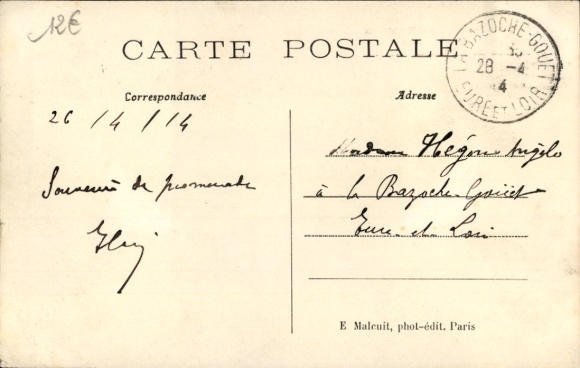 12€
CARTE POSTALE
LA BAZOCHE-GOUET
28 -4
14
EURE ET LOIR
Correspondance
Adresse
26 / 4 / 14
Souvenir de promenade
Madame Hégon Angèle
à la Bazoche-Goüet
Eure et Loir
E Malcuit, phot-édit. Paris